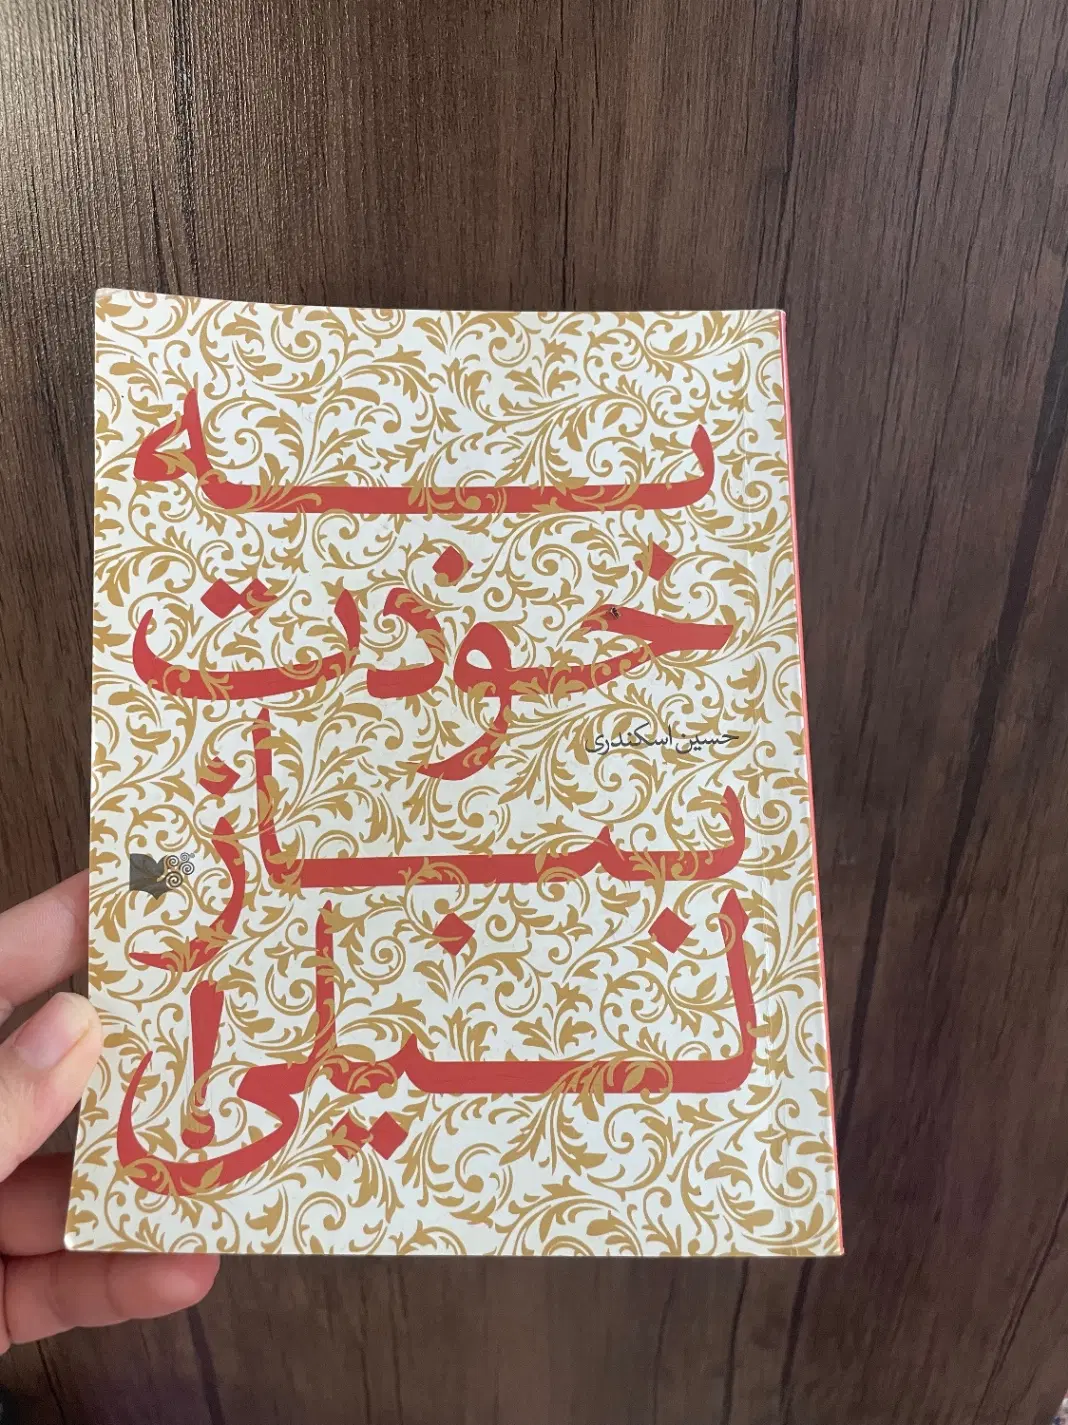 به
خودت
حسین اسکندری
بباز
لیلی